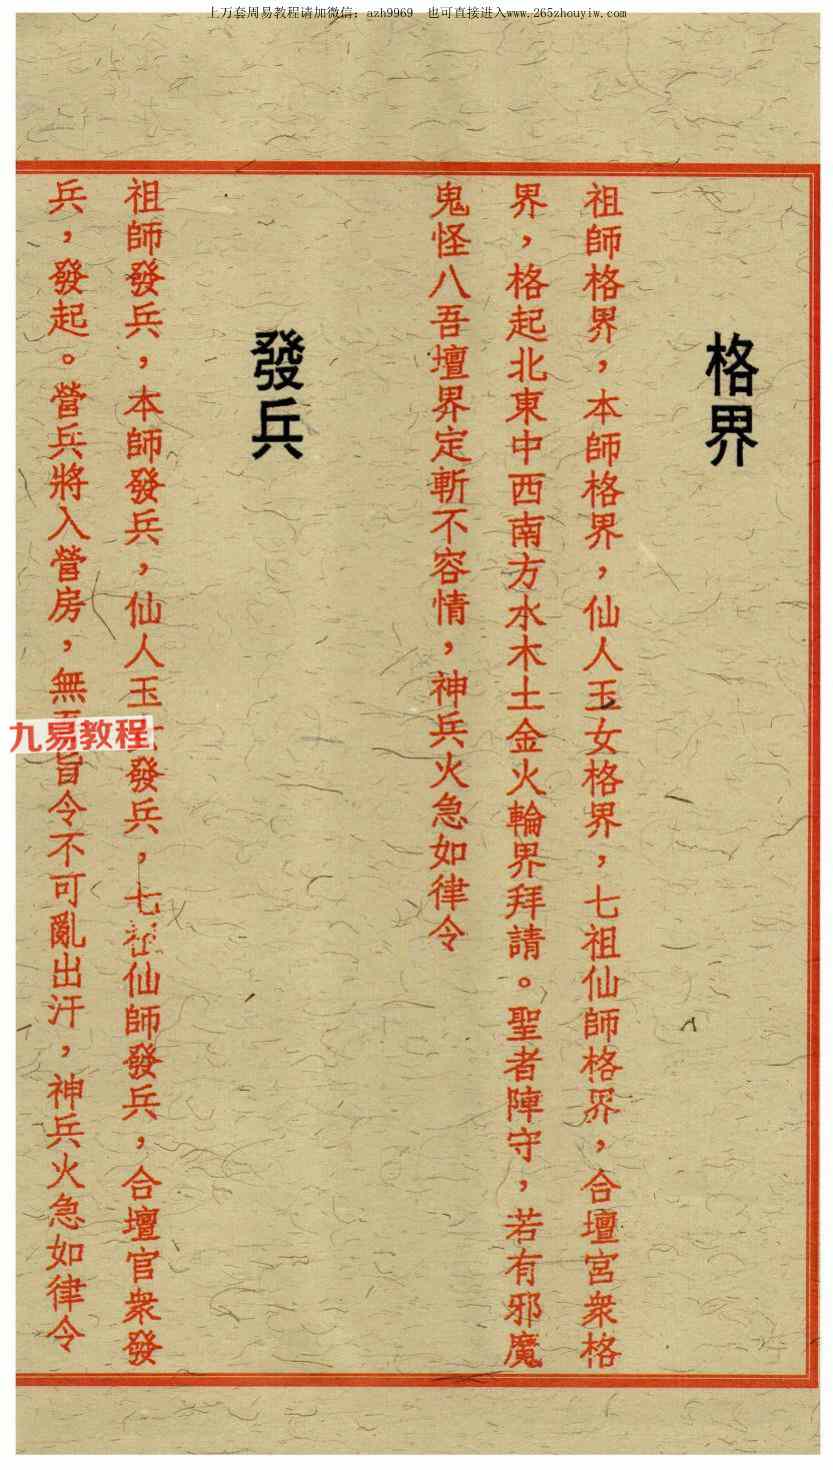 上万套周易教程请加微信：azh9969　也可直接进入www.265zhouyiw.com
格界
祖師格界，本師格界，仙人玉女格界，七祖仙師格界，合壇宮衆格
界，格起北東中西南方水木土金火輪界拜請。聖者陣守，若有邪魔
鬼怪八吾壇界定斬不容情，神兵火急如律令
發兵
祖師發兵，本師發兵，仙人玉發兵，七仙師發兵，合壇官衆發
兵，發起。營兵將入營房，無旨令不可亂出汗，神兵火急如律令
九易教程